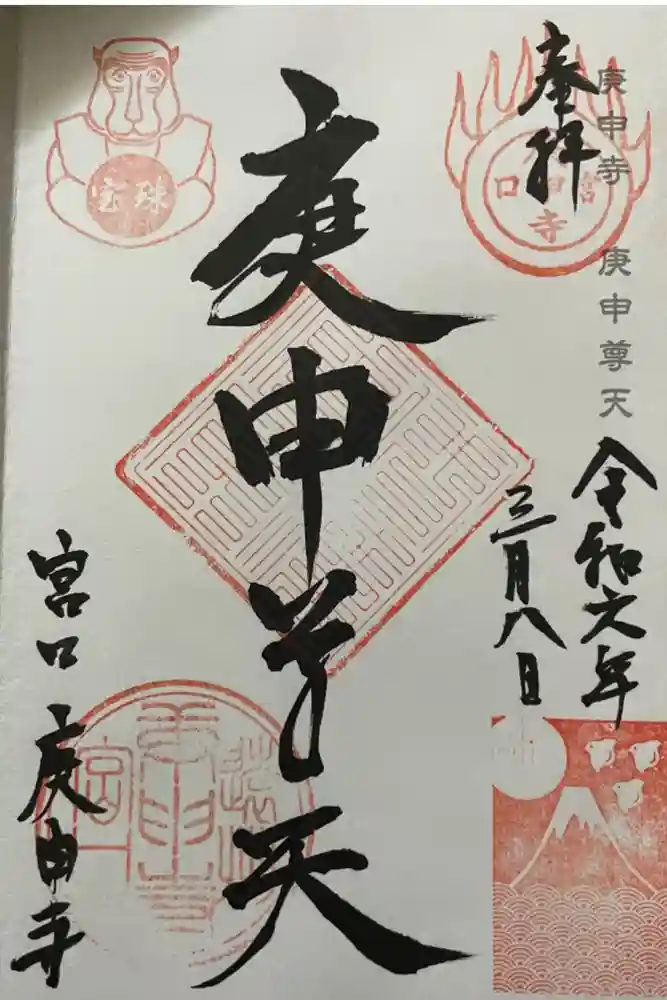 奉拝
庚申寺　庚申尊天
令和六年
三月八日
庚申尊天
宮口　庚申寺
宝珠
宮口
寺